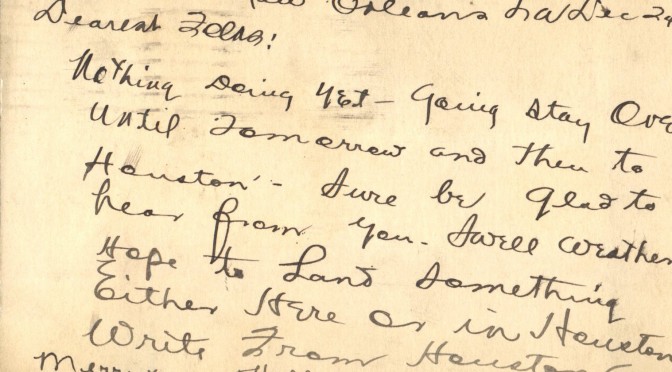 Orleans La Dec 2
Dearest Folks!
Nothing Doing Yet - Going Stay Ove
Until Tomorrow and Then to
Houston - Sure be Glad to
hear from You. Swell Weather
Hope to Land Something
Either Here or in Houston
Write From Houston